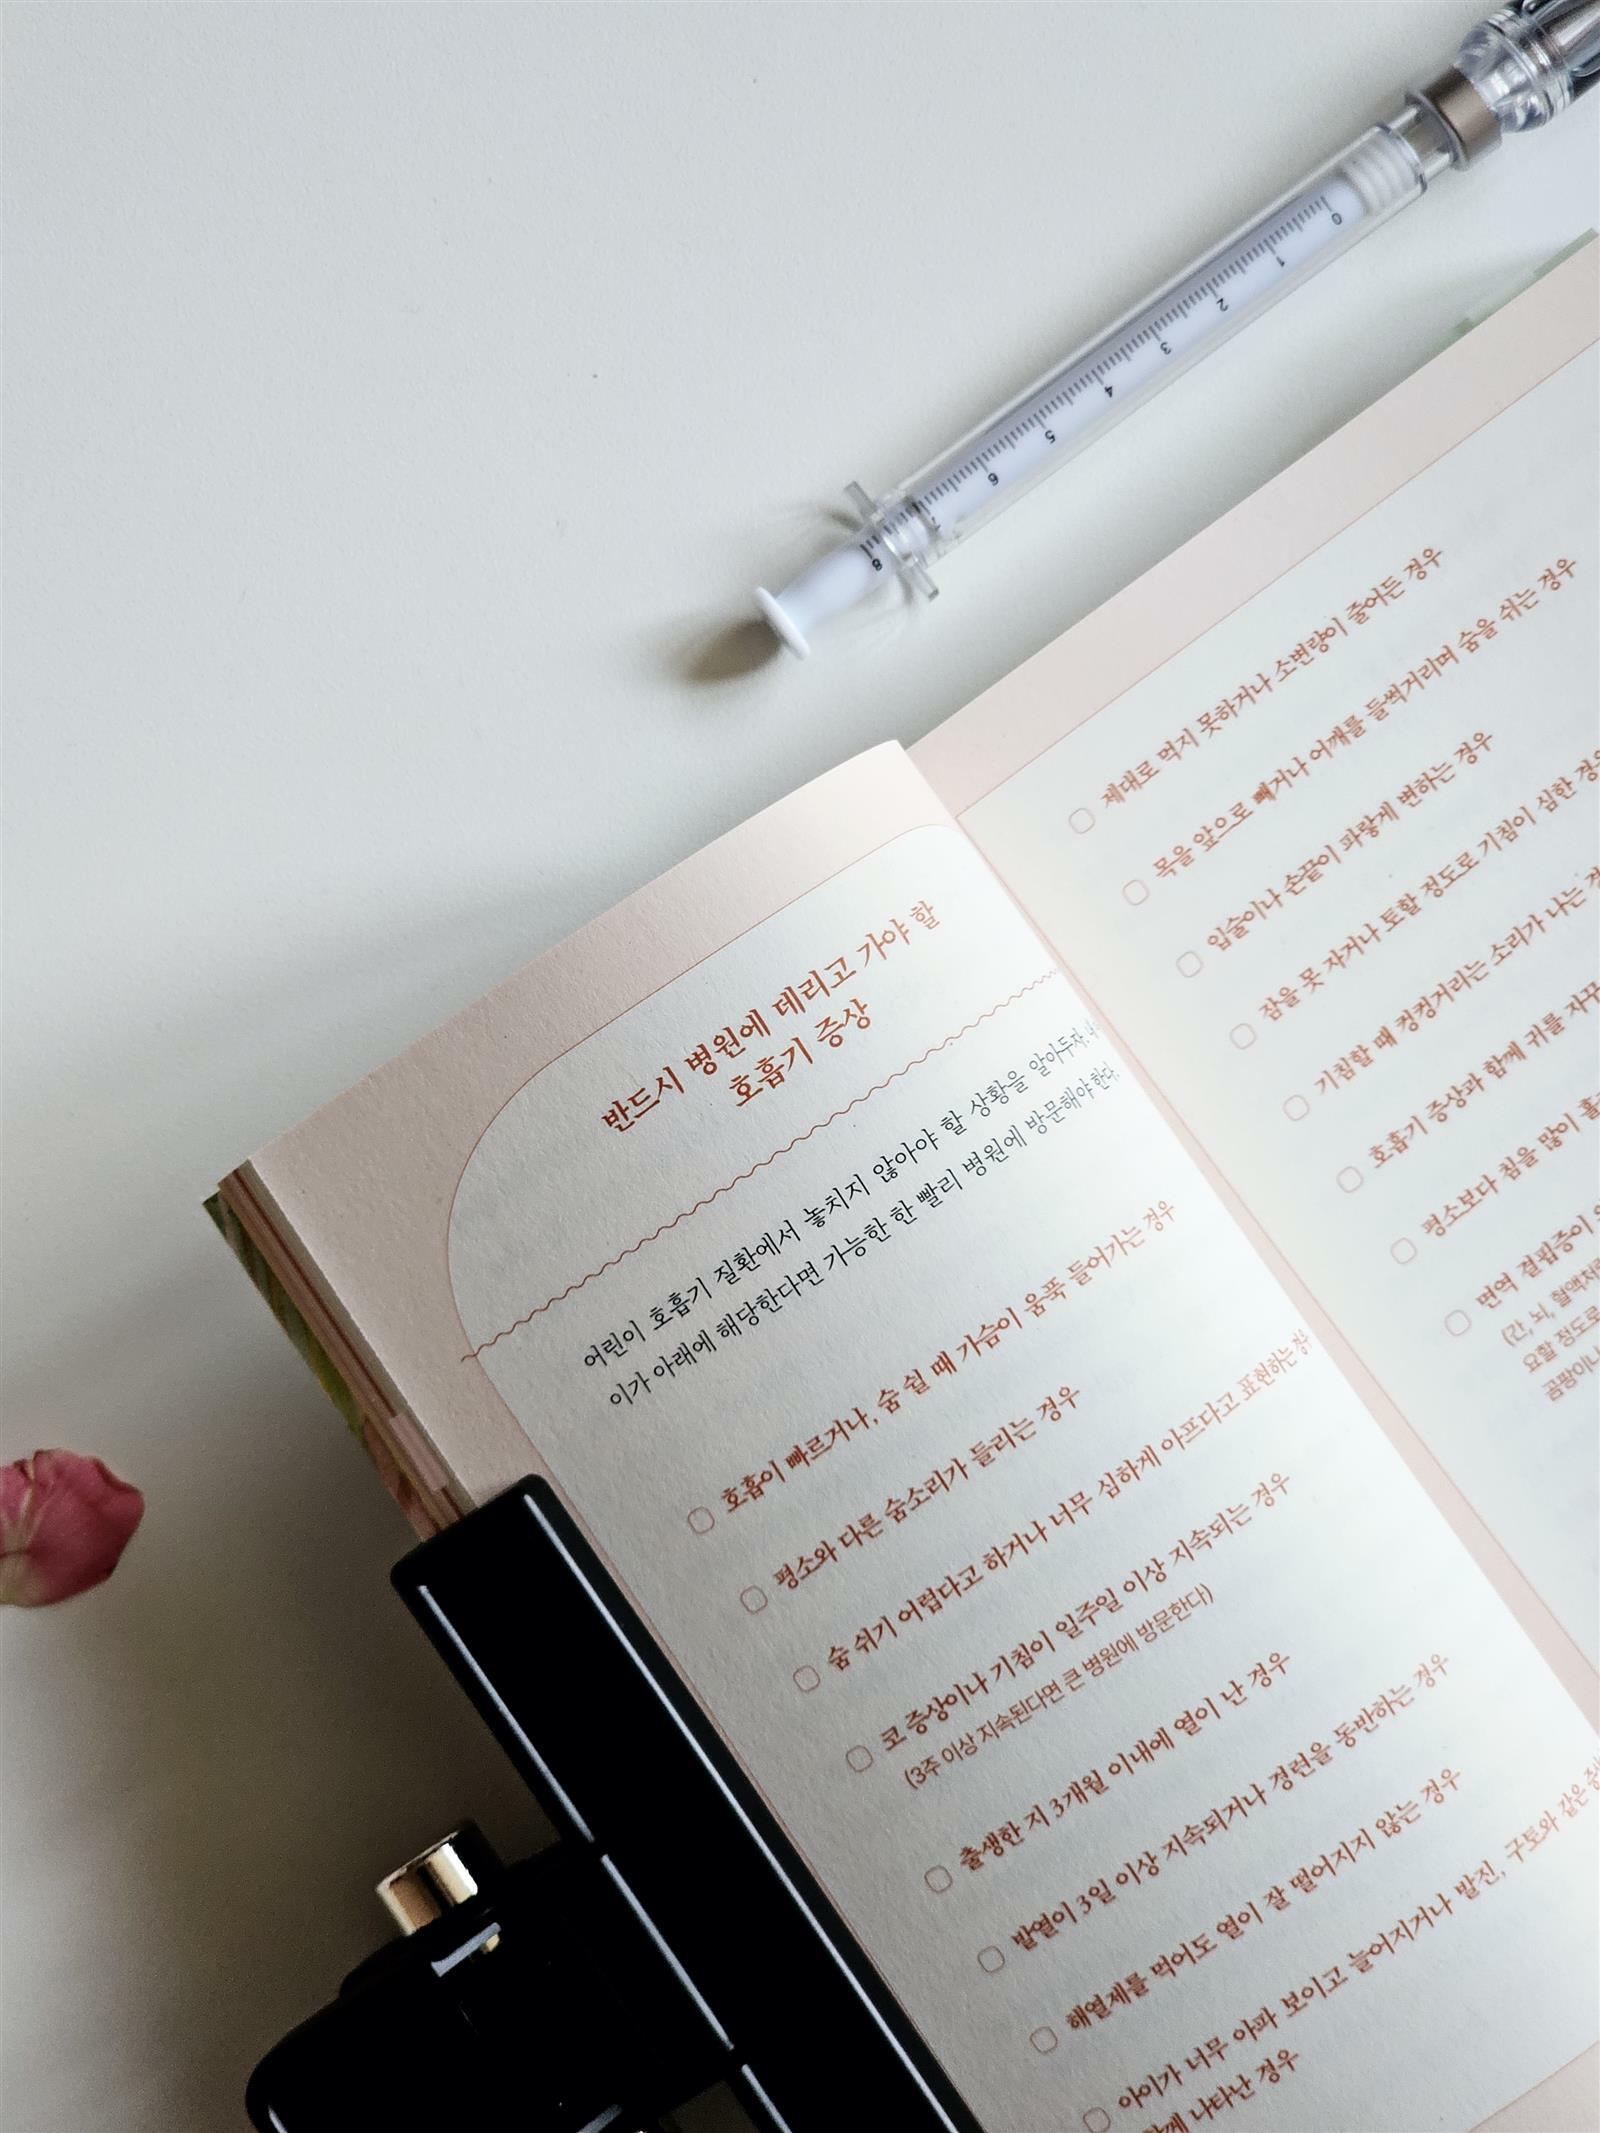 반드시 병원에 데리고 가야 할
호흡기 증상
어린이 호흡기 질환에서 놓치지 않아야 할 상황을 알아두자.
이가 아래에 해당한다면 가능한 한 빨리 병원에 방문해야 한다.
호흡이 빠르거나, 숨 쉴 때 가슴이 움푹 들어가는 경우
평소와 다른 숨소리가 들리는 경우
숨 쉬기 어렵다고 하거나 너무 심하게 아프다고 표현하는
코 증상이나 기침이 일주일 이상 지속되는 경우
(3주 이상 지속된다면 큰 병원에 방문한다)
출생한 지 3개월 이내에 열이 난 경우
발열이 3일 이상 지속되거나 경련을 동반하는 경우
해열제를 먹어도 열이 잘 떨어지지 않는 경우
아이가 너무 아파 보이고 늘어지거나 발진, 구토와 같은
함께 나타난 경우
제대로 먹지 못하거나 소변량이 줄어든 경우
목을 앞으로 빼거나 어깨를 들썩거리며 숨을 쉬는 경우
입술이나 손끝이 파랗게 변하는 경우
잠을 못 자거나 토할 정도로 기침이 심한 경우
기침할 때 컹컹거리는 소리가 나는
호흡기 증상과 함께 귀를 자꾸
평소보다 침을 많이
면역 결핍증이
(간, 뇌,
요할 정도로
0 1 2 3 4 5 6 7 8